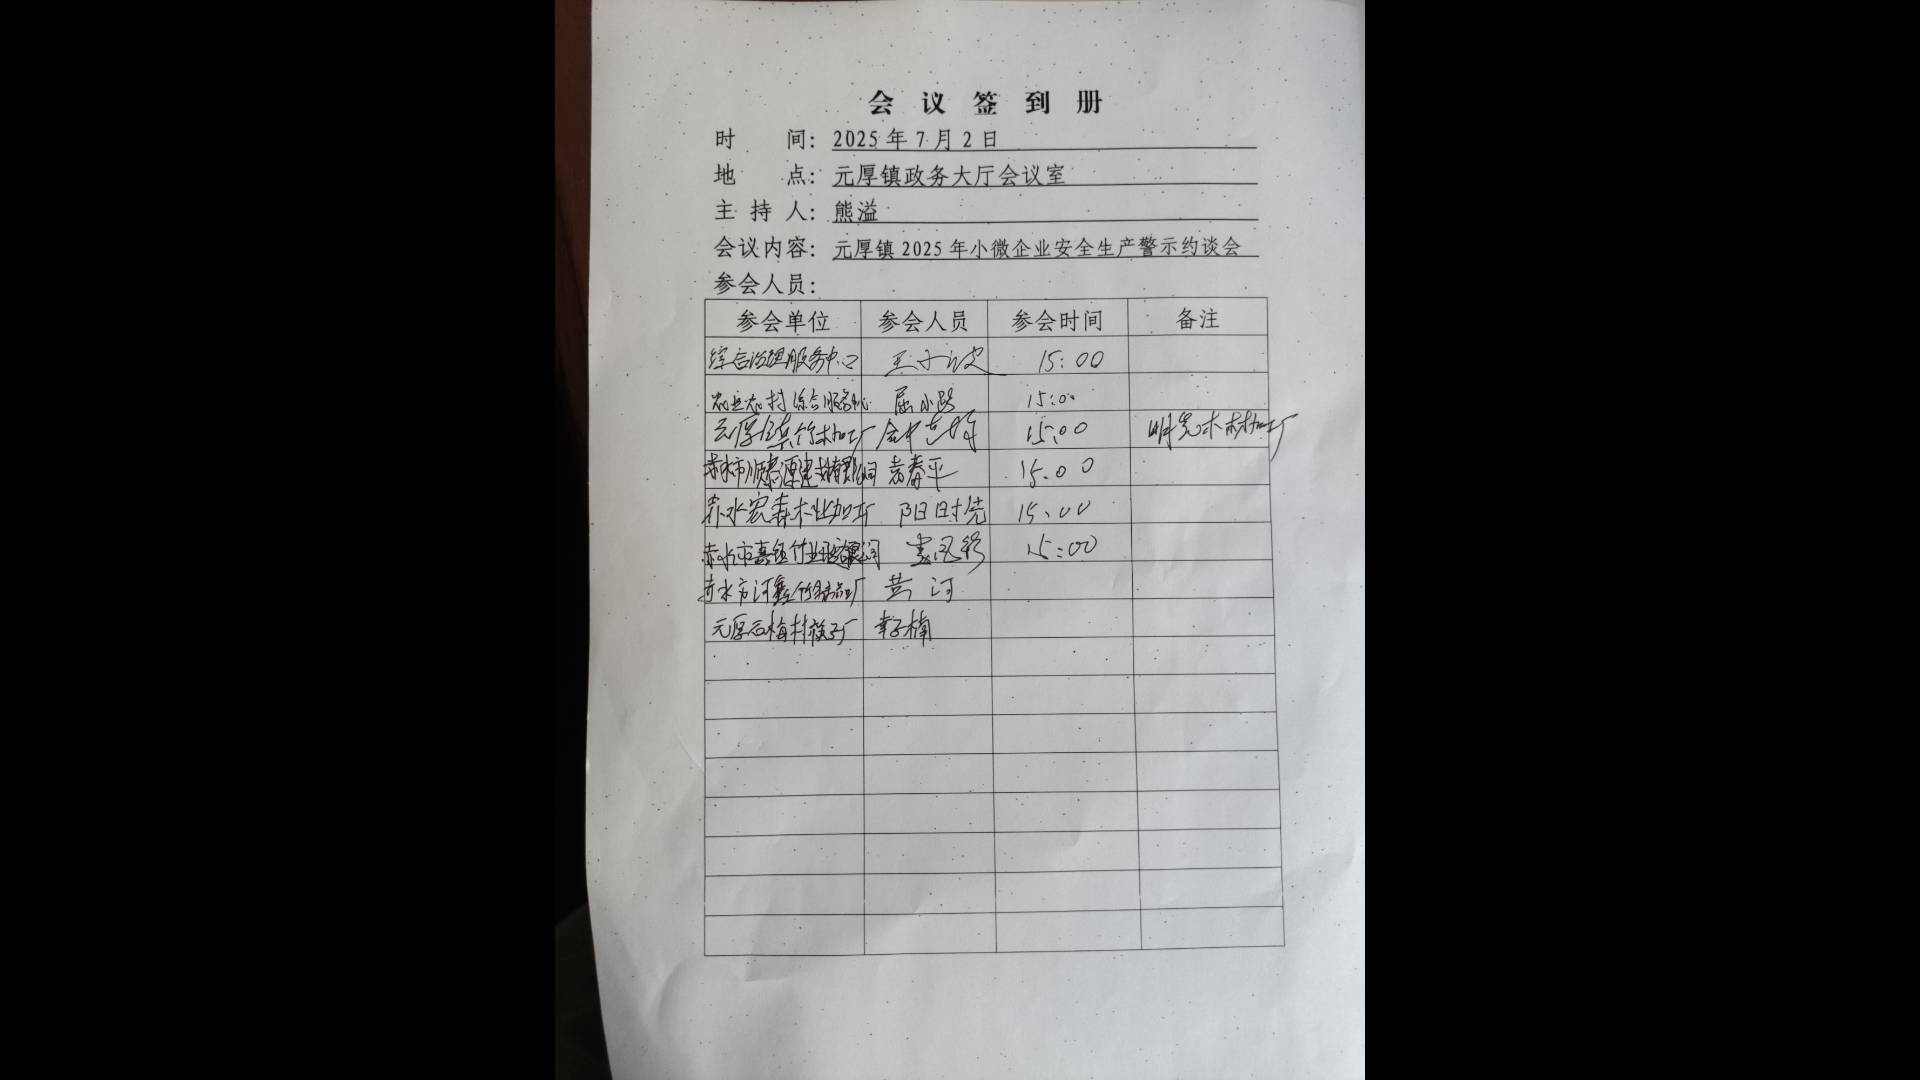 会议签到册
时 间：2025年7月2日
地 点：元厚镇政务大厅会议室
主持人：熊溢
会议内容：元厚镇2025年小微企业安全生产警示约谈会
参会人员：
参会单位 参会人员 参会时间 备注
综合治理服务中心 王小波 15:00
农业农村综合服务中心 屈小路 15:00
元厚镇竹木加工厂 15:00 明光木材加工厂
赤水市顺泰源建材有限公司 袁春平 15:00
赤水宏森木业加工厂 阳时 15:00
赤水市 竹业有限公司 15:00
赤水市河鑫竹制品厂 黄河
元厚石梅村筷子厂 李楠